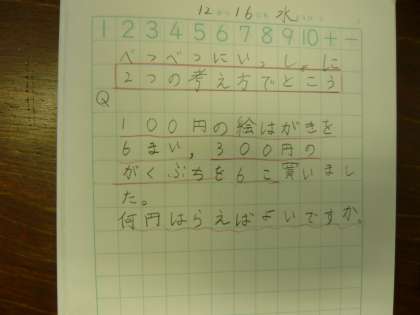 12 16 水
1 2 3 4 5 6 7 8 9 10 + -
べつべつにいっしょに
2つの考え方でとこう
Q
100円の絵はがきを
6まい,300円の
がくぶちを6こ買いまし
た。
何円はらえばよいですか。